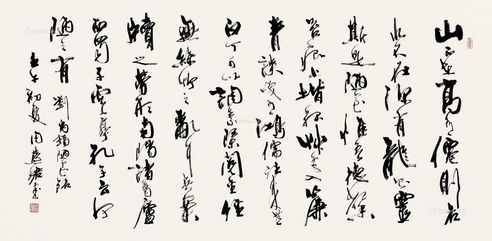 山不在高有僊則名
水不在深有龍則靈
斯是陋室惟吾德馨
苔痕上階綠草色入簾
青談笑有鴻儒往來無
白丁可以調素琴閱金經
無絲竹之亂耳無案
牘之勞形南陽諸葛廬
西蜀子雲亭孔子云何
陋之有 劉禹錫陋室銘
壬午初夏周慧珺書